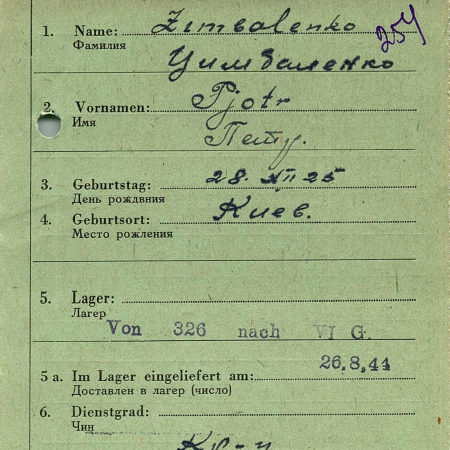 1. Name: Zimbalenko 254
Фамилия
Цимбаленко
2. Vornamen: Pjotr
Имя
Петр.
3. Geburtstag: 28. XII 25
День рождвния
4. Geburtsort: Киев.
Место рожления
5. Lager:
Лагер
Von 326 nach VI G.
26.8.44
5 a. Im Lager eingeliefert am:
Доставлен в лагер (число)
6. Dienstgrad:
Чин
Кр-ц